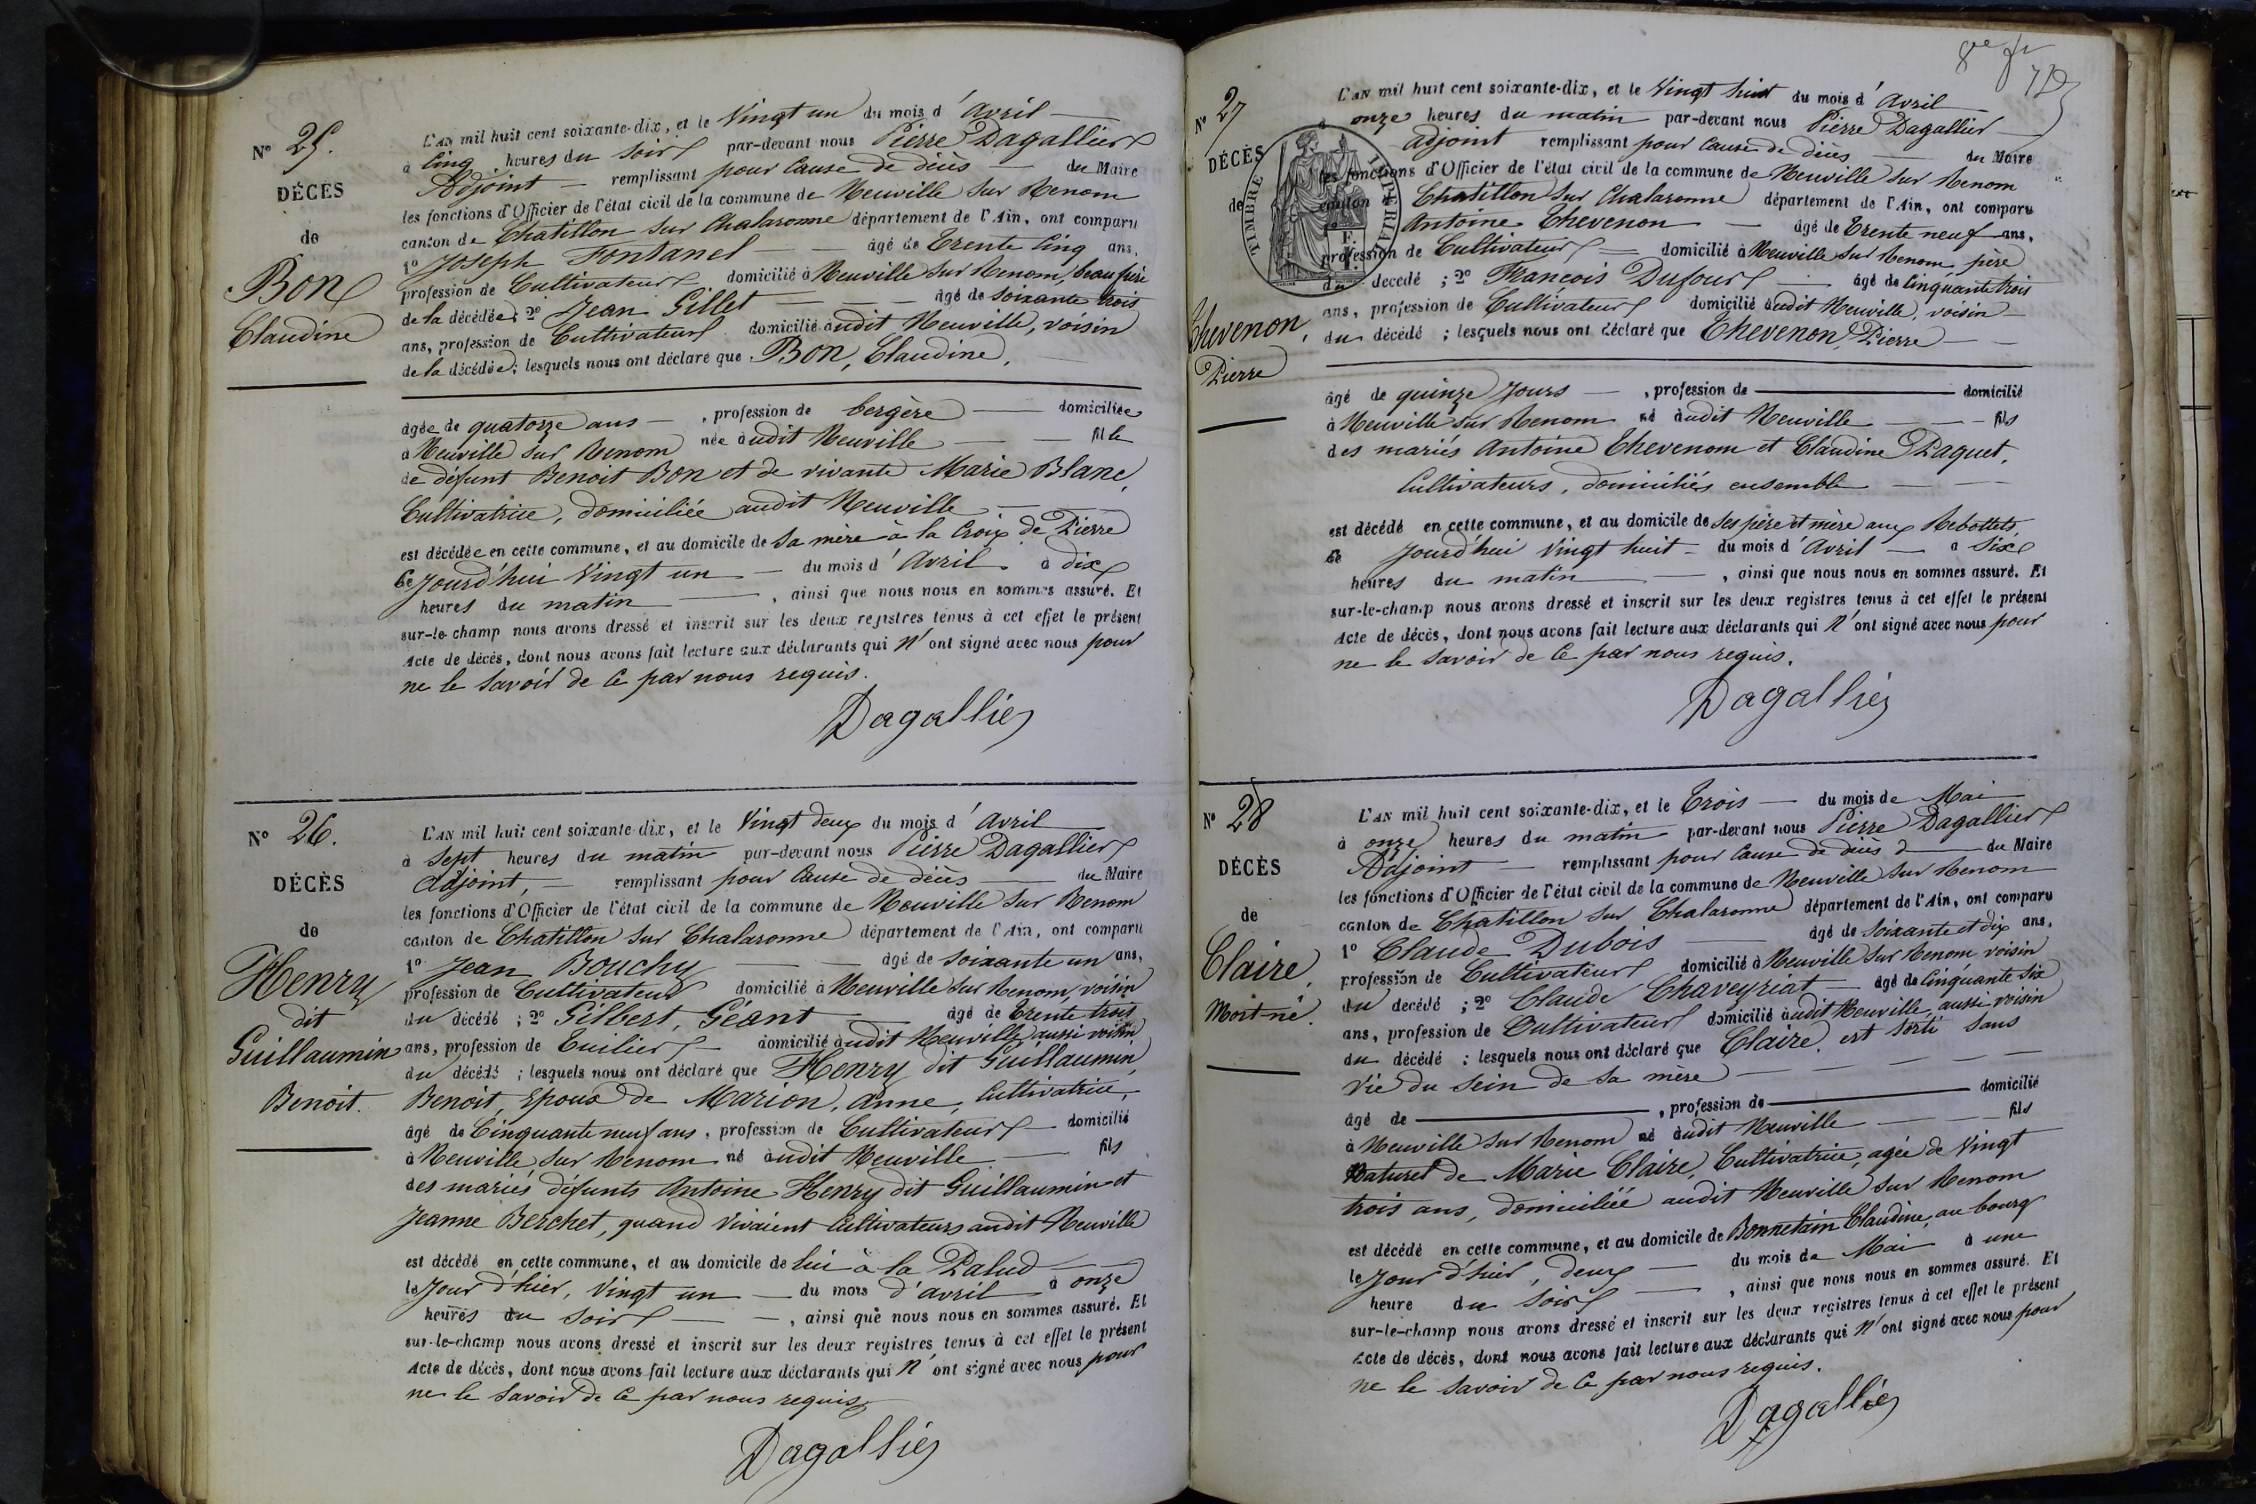 N° 25.
DÉCÈS
de
Bon
Claudine
L'AN mil huit cent soixante-dix, et le Vingt un du mois d'Avril
à Cinq heures du Soir par-devant nous Pierre Dagallier
Adjoint remplissant pour Cause de décès du Maire
les fonctions d'Officier de l'état civil de la commune de Neuville sur Renom
canton de Chatillon sur Chalaronne département de l'Ain, ont comparu
1° Joseph Fontanel âgé de Trente Cinq ans,
profession de Cultivateur domicilié à Neuville sur Renom, beau père
de la décédée; 2° Jean Gillet âgé de soixante trois
ans, profession de Cultivateur domicilié audit Neuville, voisin
de la décédée; lesquels nous ont déclaré que Bon, Claudine,
âgée de quatorze ans, profession de bergère domiciliée
à Neuville sur Renom née audit Neuville fille
de défunt Benoit Bon et de vivante Marie Blanc,
Cultivatrice, domiciliée audit Neuville
est décédée en cette commune, et au domicile de sa mère à la Croix de Pierre
Ce Jourd'hui Vingt un du mois d'Avril à dix
heures du matin, ainsi que nous nous en sommes assuré. Et
sur-le-champ nous avons dressé et inscrit sur les deux registres tenus à cet effet le présent
Acte de décès, dont nous avons fait lecture aux déclarants qui n'ont signé avec nous pour
ne le savoir de ce par nous requis.
Dagallier
N° 26.
DÉCÈS
de
Henry
dit
Guillaumin
Benoit.
L'AN mil huit cent soixante-dix, et le Vingt deux du mois d'Avril
à Sept heures du matin par-devant nous Pierre Dagallier
Adjoint, remplissant pour Cause de décès du Maire
les fonctions d'Officier de l'état civil de la commune de Neuville sur Renom
canton de Chatillon sur Chalaronne département de l'Ain, ont comparu
1° Jean Bouchy âgé de soixante un ans,
profession de Cultivateur domicilié à Neuville sur Renom, voisin
du décédé; 2° Gilbert, Géant âgé de Trente trois
ans, profession de Tuilier domicilié audit Neuville, aussi voisin
du décédé; lesquels nous ont déclaré que Henry dit Guillaumin,
Benoit, Epoux de Marion, Anne, Cultivatrice,
âgé de Cinquante neuf ans, profession de Cultivateur domicilié
à Neuville sur Renom né audit Neuville fils
des mariés défunts Antoine Henry dit Guillaumin et
Jeanne Berchet, quand vivaient Cultivateurs audit Neuville
est décédé en cette commune, et au domicile de lui à la Palud
le Jour d'hier, Vingt un du mois d'avril à onze
heures du Soir, ainsi que nous nous en sommes assuré. Et
sur-le-champ nous avons dressé et inscrit sur les deux registres tenus à cet effet le présent
Acte de décès, dont nous avons fait lecture aux déclarants qui n'ont signé avec nous pour
ne le savoir de ce par nous requis
Dagallier
N° 27
DÉCÈS
de
TIMBRE IMPERIAL
Thevenon,
Pierre
L'AN mil huit cent soixante-dix, et le Vingt huit du mois d'Avril
à onze heures du matin par-devant nous Pierre Dagallier
Adjoint remplissant pour Cause de décès du Maire
les fonctions d'Officier de l'état civil de la commune de Neuville sur Renom
canton Chatillon sur Chalaronne département de l'Ain, ont comparu
Antoine Thevenon âgé de Trente neuf ans,
profession de Cultivateur domicilié à Neuville sur Renom père
du décédé; 2° Francois Dufour âgé de Cinquante trois
ans, profession de Cultivateur domicilié audit Neuville, voisin
du décédé; lesquels nous ont déclaré que Thevenon, Pierre
âgé de quinze Jours, profession de domicilié
à Neuville sur Renom né audit Neuville fils
des mariés Antoine Thevenom et Claudine Paquet,
Cultivateurs, domiciliés ensemble
est décédé en cette commune, et au domicile de Ses père et mère aux Rebottets
Ce Jourd'hui Vingt huit du mois d'Avril à six
heures du matin, ainsi que nous nous en sommes assuré. Et
sur-le-champ nous avons dressé et inscrit sur les deux registres tenus à cet effet le présent
Acte de décès, dont nous avons fait lecture aux déclarants qui n'ont signé avec nous pour
ne le savoir de ce par nous requis.
Dagallier
N° 28
DÉCÈS
de
Claire,
Mort né.
L'AN mil huit cent soixante-dix, et le Trois du mois de Mai
à onze heures du matin par-devant nous Pierre Dagallier
Adjoint remplissant pour Cause de décès du Maire
les fonctions d'Officier de l'état civil de la commune de Neuville sur Renom
canton de Chatillon sur Chalaronne département de l'Ain, ont comparu
1° Claude Dubois âgé de soixante et dix ans,
profession de Cultivateur domicilié à Neuville sur Renom voisin
du décédé; 2° Claude Chaveyriat âgé de Cinquante six
ans, profession de Cultivateur domicilié audit Neuville, aussi voisin
du décédé; lesquels nous ont déclaré que Claire, est sorti sans
Vie du sein de sa mère
âgé de, profession de domicilié
à Neuville sur Renom né audit Neuville fils
Naturel de Marie Claire, Cultivatrice, agée de Vingt
trois ans, domiciliée audit Neuville sur Renom
est décédé en cette commune, et au domicile de Bonnetain Claudine, au bourg
le Jour d'hier, deux du mois de Mai à une
heure du Soir, ainsi que nous nous en sommes assuré. Et
sur-le-champ nous avons dressé et inscrit sur les deux registres tenus à cet effet le présent
Acte de décès, dont nous avons fait lecture aux déclarants qui n'ont signé avec nous pour
ne le savoir de ce par nous requis.
Dagallier